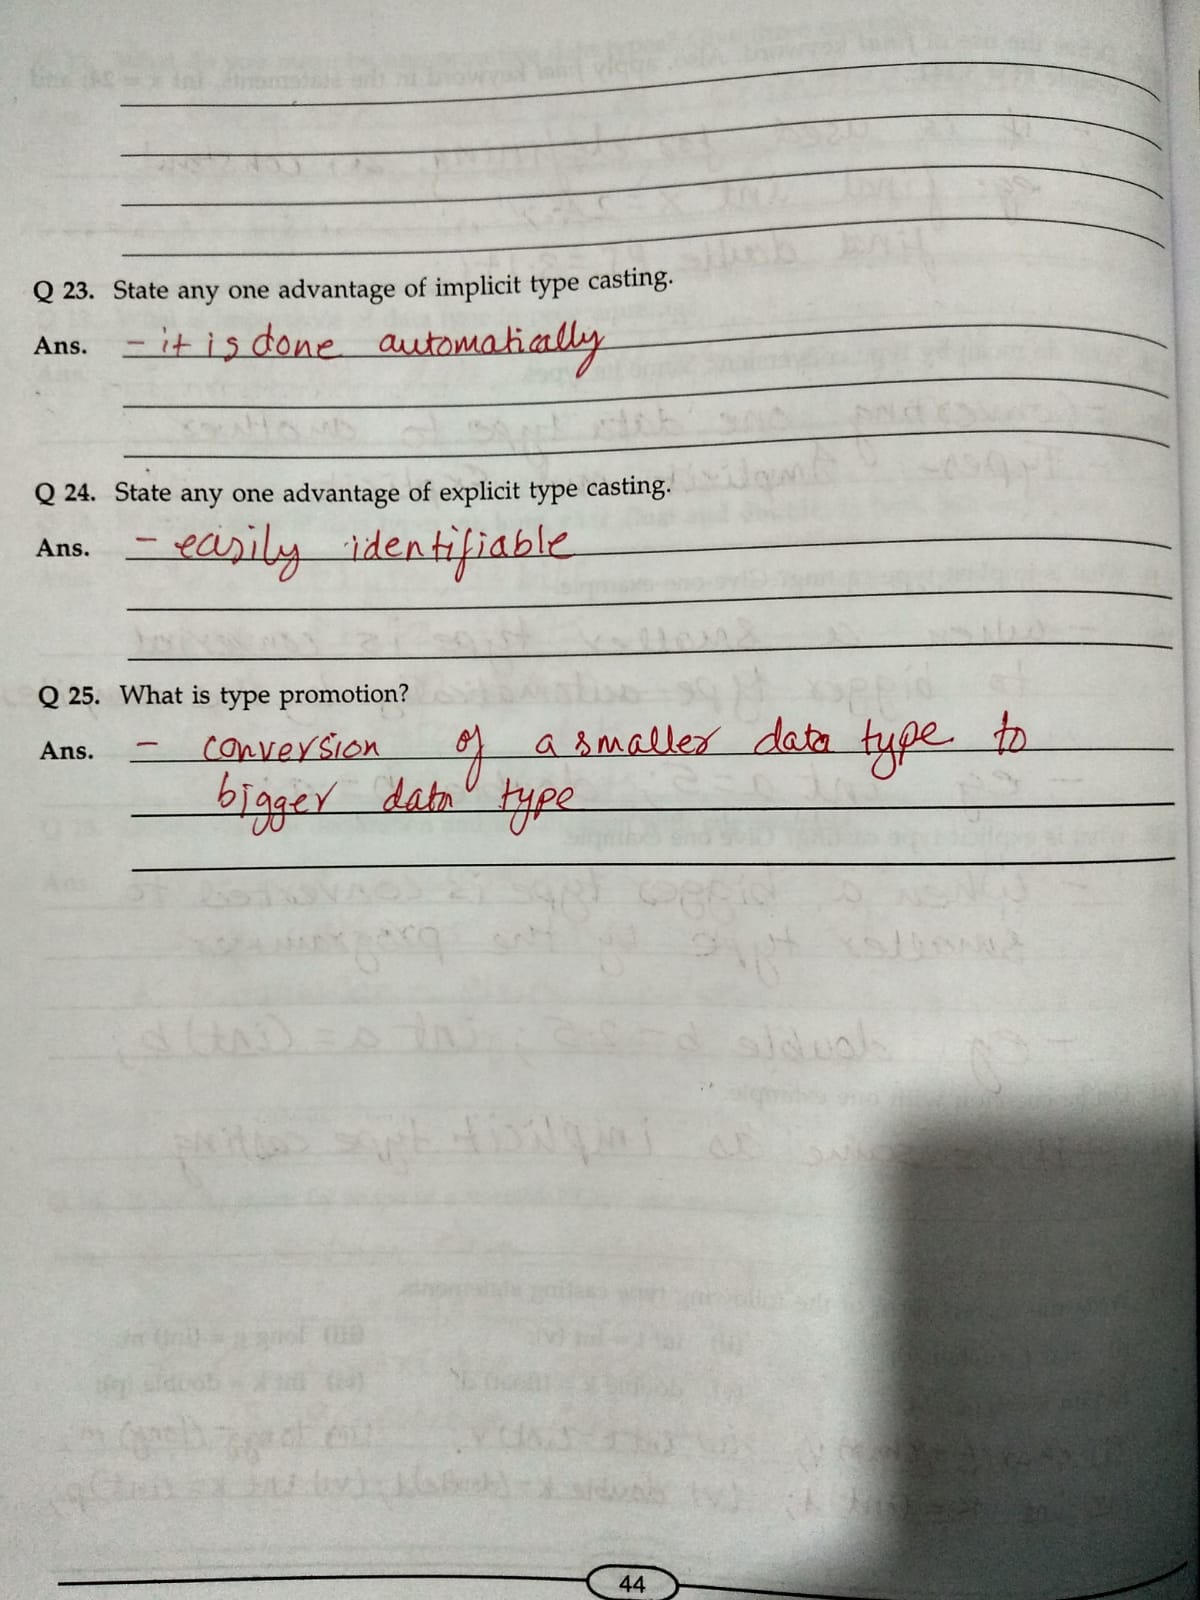 Q 23. State any one advantage of implicit type casting.
Ans. - it is done automatically
Q 24. State any one advantage of explicit type casting.
Ans. - easily identifiable
Q 25. What is type promotion?
Ans. - conversion of a smaller data type to
bigger data type
44